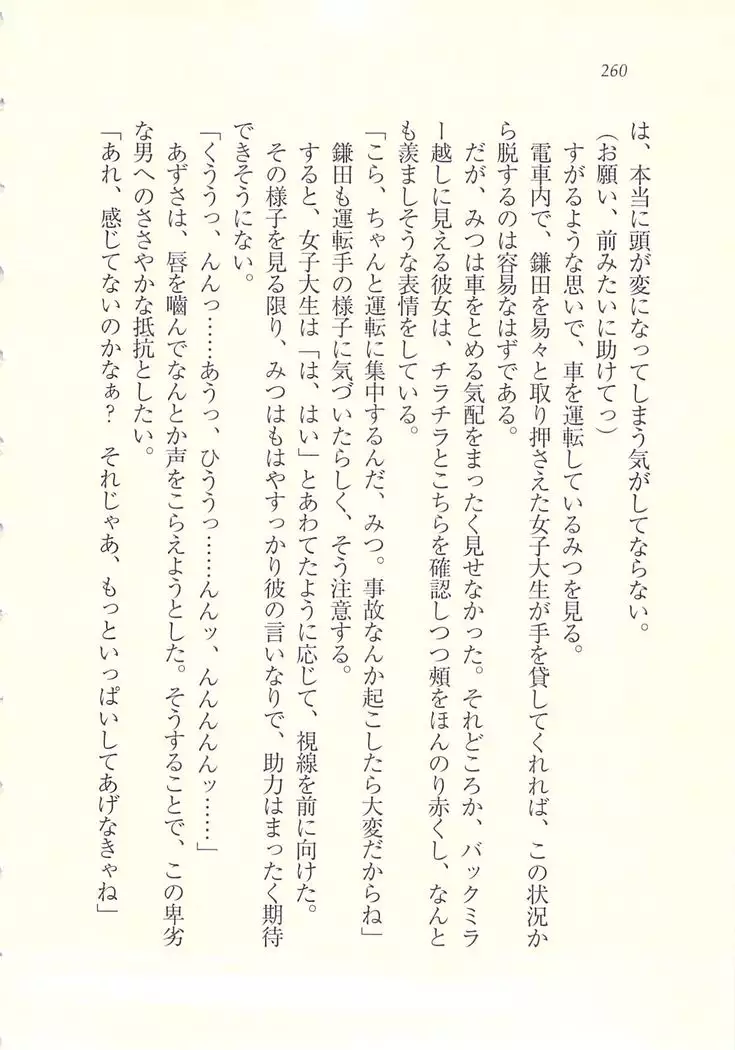 260
は、本当に頭が変になってしまう気がしてならない。
（お願い、前みたいに助けてっ）
すがるような思いで、車を運転しているみつを見る。
電車内で、鎌田を易々と取り押さえた女子大生が手を貸してくれれば、この状況か
ら脱するのは容易なはずである。
だが、みつは車をとめる気配をまったく見せなかった。それどころか、バックミラ
ー越しに見える彼女は、チラチラとこちらを確認しつつ頰をほんのり赤くし、なんと
も羨ましそうな表情をしている。
「こら、ちゃんと運転に集中するんだ、みつ。事故なんか起こしたら大変だからね」
鎌田も運転手の様子に気づいたらしく、そう注意する。
すると、女子大生は「は、はい」とあわてたように応じて、視線を前に向けた。
その様子を見る限り、みつはもはやすっかり彼の言いなりで、助力はまったく期待
できそうにない。
「くううっ、んんっ……あうっ、ひううっ……んんッ、んんんんんッ……」
あずさは、唇を嚙んでなんとか声をこらえようとした。そうすることで、この卑劣
な男へのささやかな抵抗としたい。
「あれ、感じてないのかなぁ？　それじゃあ、もっといっぱいしてあげなきゃね」